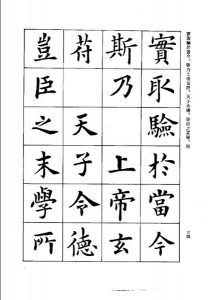 實取驗於當今。斯乃上帝玄符，天子令德，豈臣之末學所
實取驗於當今
斯乃上帝玄
符天子令德
豈臣之末學所